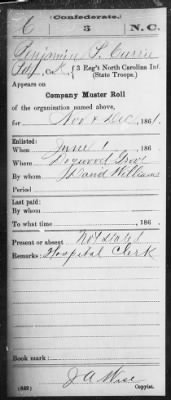 Confederate.
C 3 N.C.
Benjamin F. Currie
3 Reg't North Carolina Inf.
(State Troops.)
Appears on
Company Muster Roll
of the organization named above,
for Nov & Dec, 1861.
Enlisted:
When June 1, 186
Where
By whom Williams
Period
Last paid:
By whom
To what time , 186
Present or absent Not stated
Remarks: Hospital Clerk
Book mark:
J A Wise
Copyist.